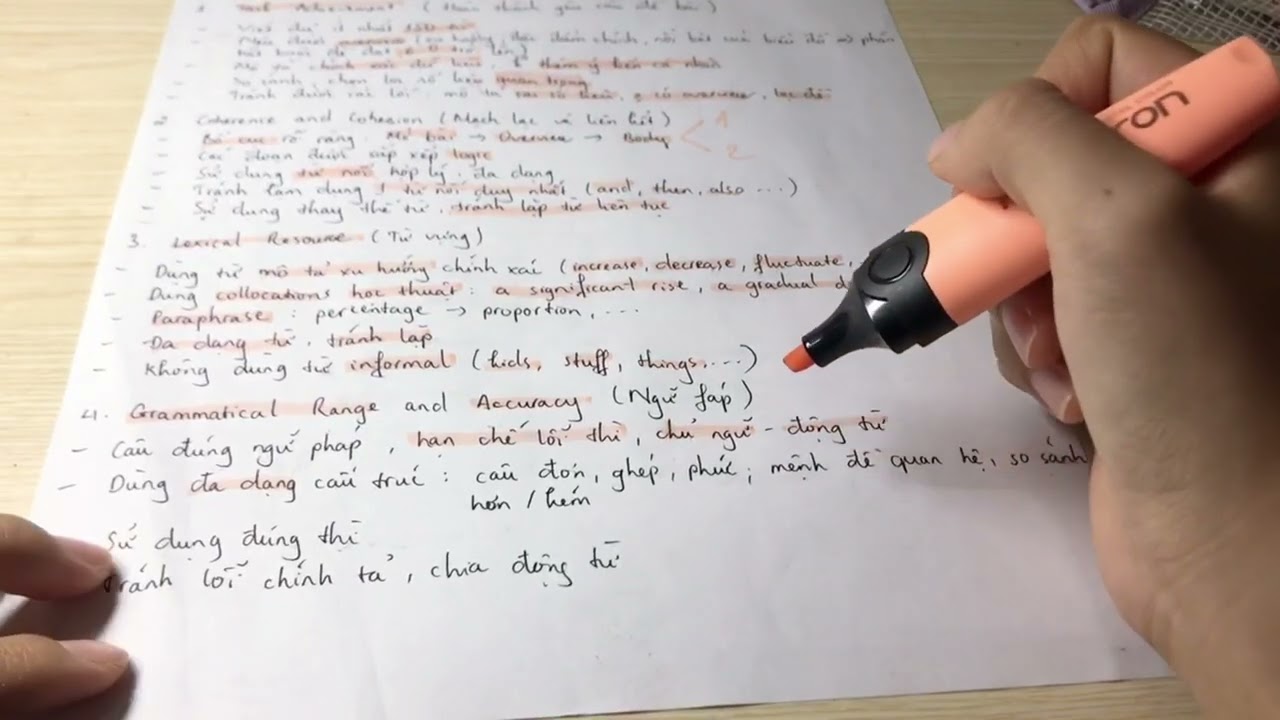 1 Task Achievement (Hoàn thành yêu cầu đề bài)
- Viết ít nhất 150 từ
- overview
- chính xác dữ liệu, thêm ý kiến cá nhân
- So sánh, chọn lọc số liệu quan trọng
- Tránh được các lỗi: mô tả sai số liệu, 0 có overview, lạc đề
2 Coherence and Cohesion (Mạch lạc và liên kết)
- Bố cục rõ ràng: Mở bài → Overview → Body < 1 2
- Các đoạn được sắp xếp logic
- Sử dụng từ nối hợp lý, đa dạng
- Tránh lạm dụng 1 từ nối duy nhất (and, then, also ...)
- Sử dụng thay thế từ, tránh lặp từ liên tục
3. Lexical Resource (Từ vựng)
- Dùng từ mô tả xu hướng chính xác (increase, decrease, fluctuate,
- Dùng collocations học thuật: a significant rise, a gradual d
- Paraphrase: percentage → proportion, ...
- Đa dạng từ, tránh lặp
- Không dùng từ informal (kids, stuff, things, ...)
4. Grammatical Range and Accuracy (Ngữ fáp)
- Câu đúng ngữ pháp, hạn chế lỗi thì, chủ ngữ - động từ
- Dùng đa dạng cấu trúc: câu đơn, ghép, phức; mệnh đề quan hệ, so sánh
hơn / kém
Sử dụng đúng thì
Tránh lỗi chính tả, chia động từ